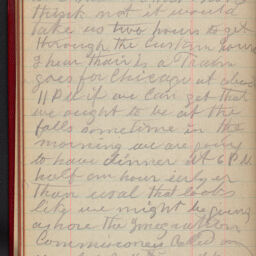 think not it would
take us two hours to get
through the Custom house
I hear thair is a Train
goes for Chicago at about
11 P.M if we can get that
we ought to be at the
falls sometime in the
morning we are going
to have dinner at 6 P.M.
half an hour
than usal that looks
like we might be going
ashore the Imegration
Commissoners